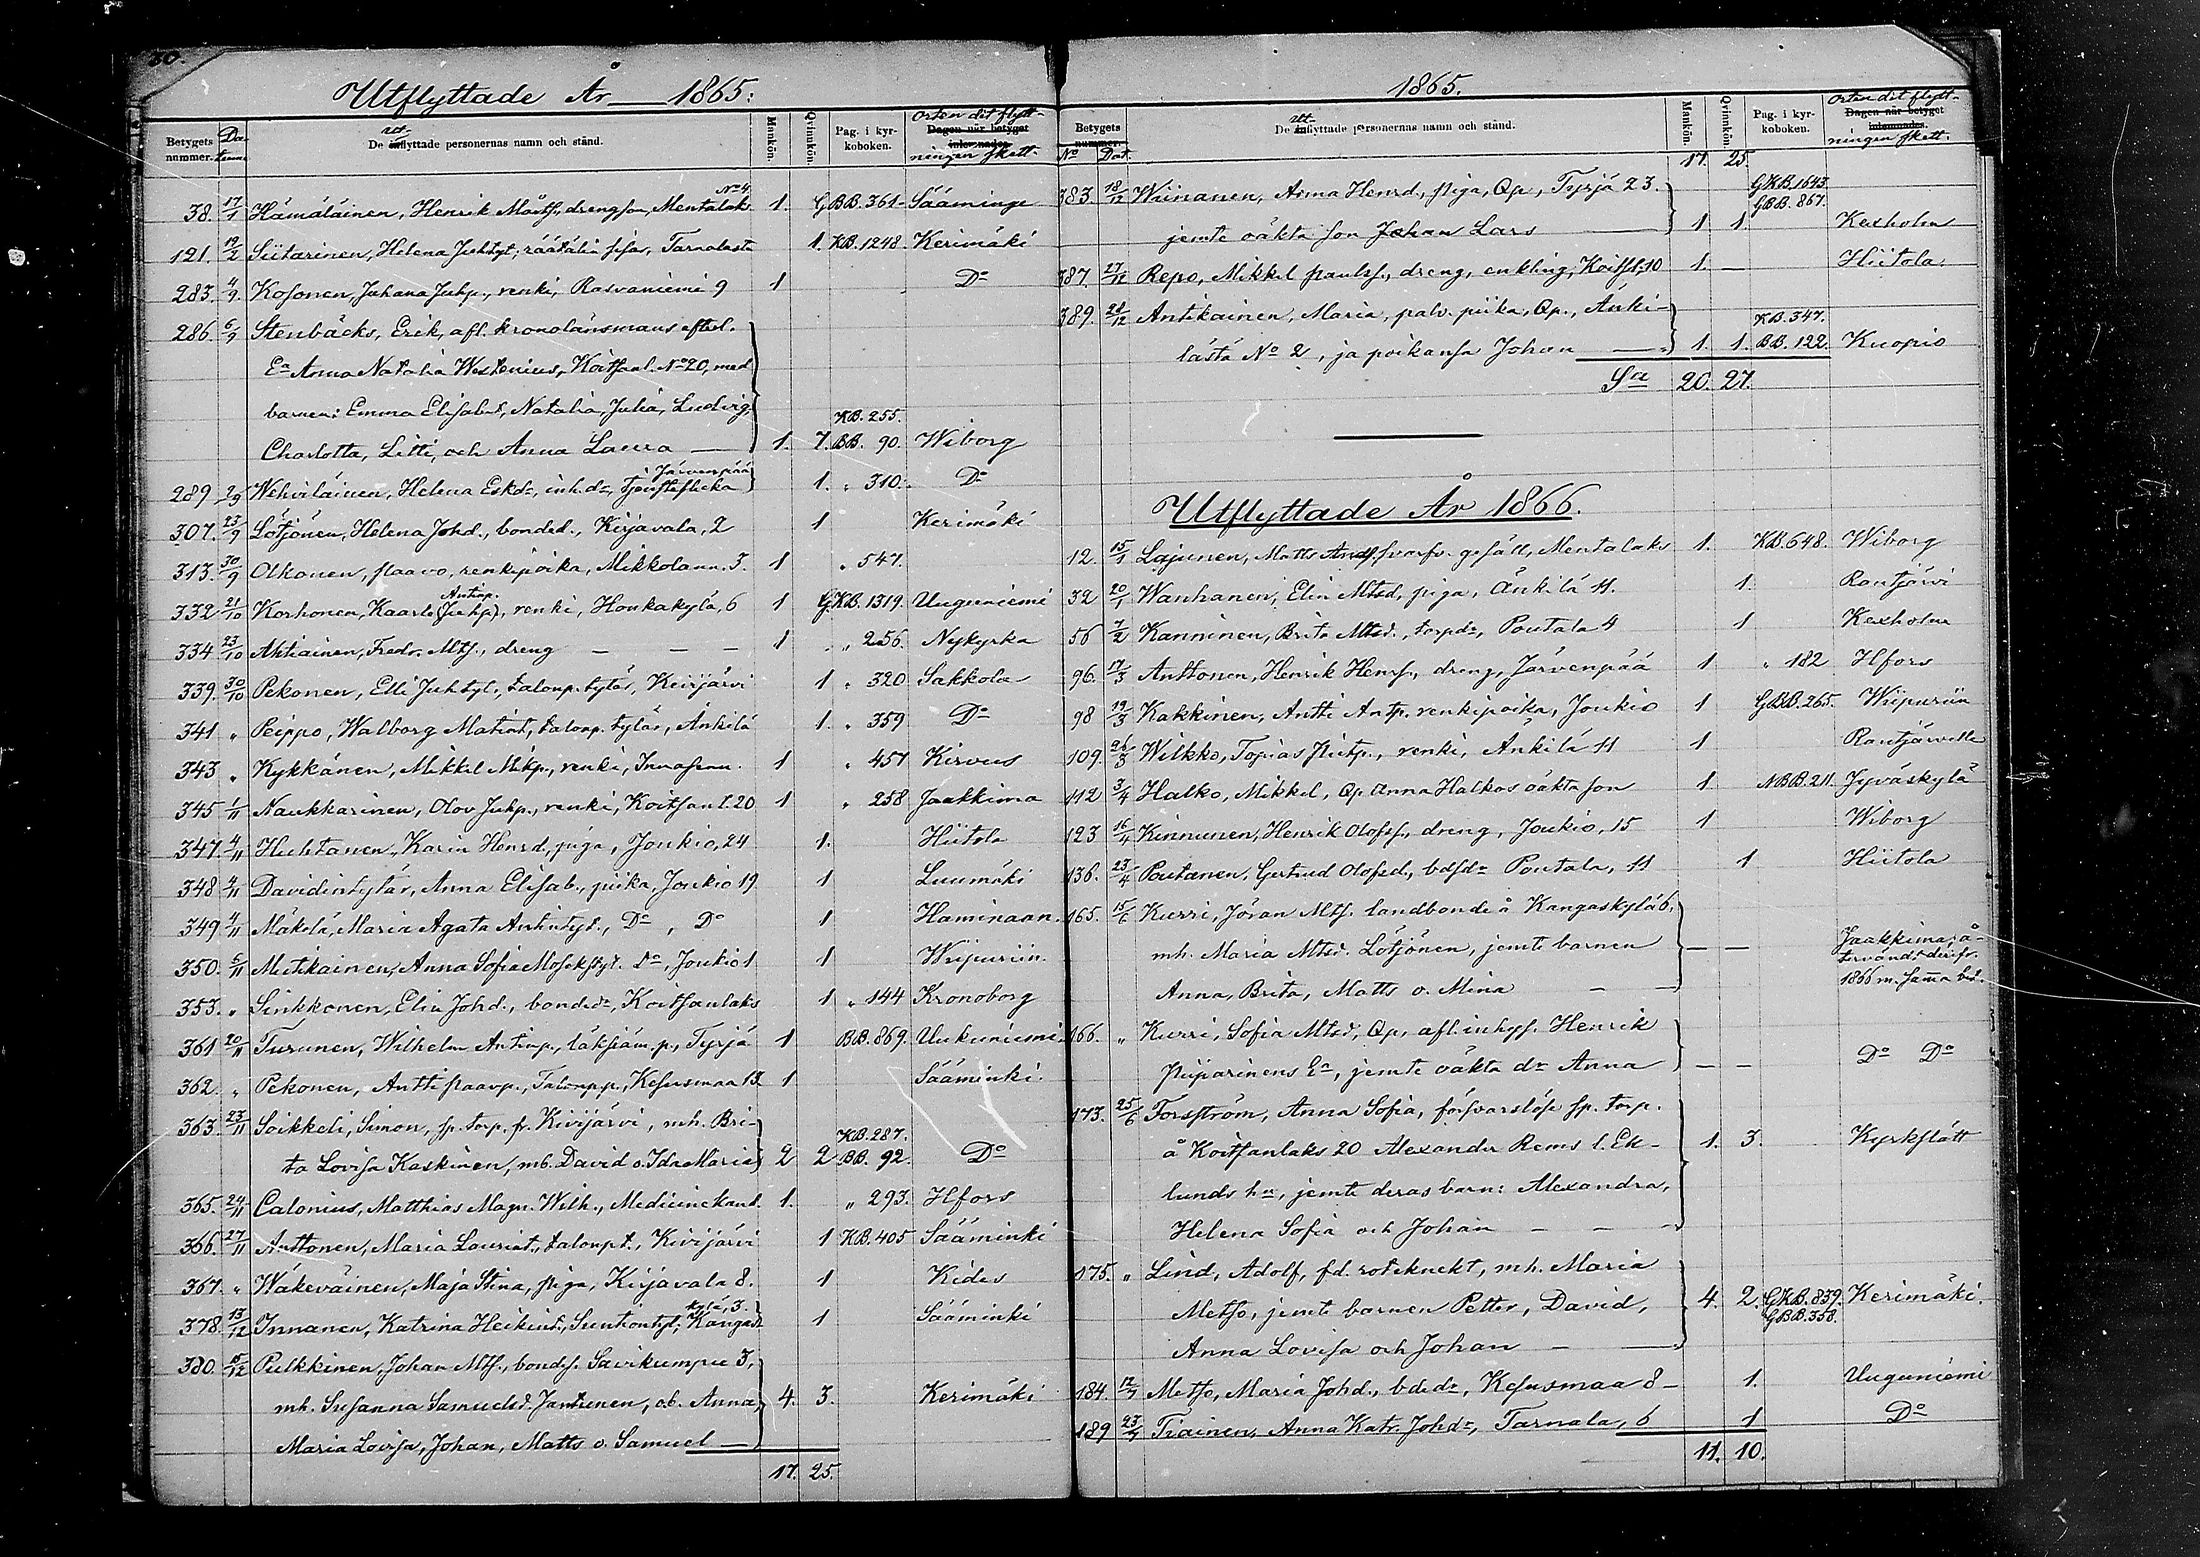 30.
Utflyttade År 1865:
Betygets nummer. Datum. De utflyttade personernas namn och stånd. Mankön. Qvinnkön. Pag. i kyrkoboken. Orten dit flyttningen skett.
No 4
38. 17/1 Hämäläinen, Henrik Mattss., drengson, Mentalak 1. GBB. 361 Sääminge
121. 19/2 Siitarinen, Helena Juhtyt, räätälin, Tarnalasta 1. KB. 1248. Kerimäki
283. 4/9 Kosonen, Juhana Juhp., renki, Rasvaniemi 9 1 Do
286. 6/9 Stenbäcks, Erik, afl. kronolänsmans efterl.
Ea Anna Natalia Westenius, Koitsanl. No 20, med
barnen: Emma Elisabet, Natalia, Julia, Ludvig, KB. 255.
Charlotta, Litti, och Anna Laura 1. 7. BB. 90. Wiborg
Järvenpää
289 Wehviläinen, Helena Eskdr, inh.dr, tjensteflicka 1. " 310. Do
307. 23/9 Lötjönen, Helena Johd., bonded., Kirjavala, 2 1 Kerimäki
313. 30/9 Olkonen, Paavo, renkipoika, Mikkolann. 3. 1 " 547.
Antinp.
332 21/10 Korhonen, Kaarle (Juhp), renki, Honkakylä, 6 1 GKB. 1319. Uuguniemi
334 23/10 Ahtiainen, Fredr. Mts., dreng 1 " 256. Nykyrka
339. 30/10 Pekonen, Elli Juhtyt., talonp. tytär, Kivijärvi 1 " 320 Sakkola
341 " Peippo, Walborg Matint., talonp. tytär, Änkilä 1. " 359 Do
343 " Kykkänen, Mikkel Mikp., renki, 1 " 457 Kirvus
345 1/11 Naukkarinen, Olov Juhp., renki, Koitsanl. 20 1 " 258 Jaakkima
347. 4/11 Huhtanen, Karin Henrd, piga, Joukio, 24 1. Hiitola
348 4/11 Davidintytär, Anna Elisab., piika, Joukio 19 1 Luumäki
349 4/11 Mäkelä, Maria Agata Antintyt., Do, Do 1 Haminaan.
350. 5/11 Mutikainen, Anna Sofia Do, Joukio 1 1 Wiipuriin.
353. " Sinkkonen, Elin Johd., bondedr, Koitsanlaks 1 " 144 Kronoborg
361 20/11 Turunen, Wilhelm Antinp., läksiäm. p., Tyrjä 1 BB. 869. Uukuniemi.
362. " Pekonen, Antti Paavp., Talonp p., Kesusmaa 13. 1 Sääminki.
363. 23/11 Soikkeli, Simon, sp. torp. fr. Kivijärvi, mh. Bri- KB. 287.
ta Lovisa Kaskinen, mb. David o. Ida Maria 2 2 BB. 92. Do
365. 24/11 Calonius, Matthias Magn. Wilh., Medicinekand. 1. " 293. Hfors
366. 27/11 Anttonen, Maria Laurint., talonpt., Kivijärvi 1 KB. 405 Sääminki
367. " Wäkeväinen, Maja Stina, piga, Kirjavala 8. 1 Kides
kylä, 3.
378. 13/12 Innanen, Katrina Heikint., Kangas- 1 Sääminki
380. 15/12 Pulkkinen, Johan Mts., bondes. Savikumpu 3,
mh. Susanna Samuelsd. Jantunen, o.b. Anna, 4. 3. Kerimäki
Maria Lovisa, Johan, Matts o. Samuel
17. 25.
1865.
Betygets nummer. No Dat. De utflyttade personernas namn och stånd. Mankön. Qvinnkön. Pag. i kyrkoboken. Orten dit flyttningen skett.
17. 25.
383. 18/12 Wiinanen, Anna Henrd., piga, Qp, Tyrjä 23. GKB. 1643.
GBB. 867.
jemte oäkta son Johan Lars 1 1. Kexholm
387. 27/12 Repo, Mikkel Paulss., dreng, enkling, Koitsl. 10 1. Hiitola
389. 28/12 Antikainen, Maria, palv. piika, Qp., Änki- KB. 347.
lästä No 2, ja poikansa Johan 1. 1. BB. 122. Kuopio
Sa 20. 27.
Utflyttade År 1866.
12. 15/1 Lajunen, Matts Ands., svarfv. gesäll, Mentalaks 1. KB. 648. Wiborg
32 20/1 Wanhanen, Elin Mtsd, piga, Änkilä 11. 1. Rautjärvi
56 7/2 Kanninen, Brita Mtsd., torpdr, Poutala 4 1 Kexholm
96. 17/3 Anttonen, Henrik Henrs., dreng, Järvenpää 1 " 182 Hfors
98 19/3 Kakkinen, Antti Antp. renkipoika, Joukio 1 GBB. 265. Wiipuriin
109. 26/3 Wilkko, Topias Pietp., renki, Änkilä 11 1 Rautjärvelle
112 3/4 Halko, Mikkel, Qp Anna Halkos oäkta son 1 NBB. 211. Jyväskylä
123 16/4 Kinnunen, Henrik Olofss., dreng, Joukio, 15 1 Wiborg
136. 23/4 Poutanen, Gertrud Olofsd., bdsdr Poutala, 11 1 Hiitola
165. 15/6 Kurri, Jöran Mts. landbonde å Kangaskylä 6.
mh. Maria Mtsd. Lötjönen, jemte barnen — — Jaakkima, å-
Anna, Brita, Matts o. Mina 1866 m. samma bet.
166. " Kurri, Sofia Mtsd, Qp, afl. inhys. Henrik
Piiparinens Ea, jemte oäkta dr Anna — — Do Do
173. 25/6 Forsström, Anna Sofia, försvarslöse sp. torp.
å Koitsanlaks 20 Alexander Rems l. Ek- 1. 3. Kyrkslätt
lunds ha, jemte deras barn: Alexandra,
Helena Sofia och Johan
175. " Lind, Adolf, fd. roteknekt, mh. Maria
Metso, jemte barnen Petter, David, 4. 2. GKB. 839. Kerimäki.
GBB. 358.
Anna Lovisa och Johan
184. 12/7 Metso, Maria Johd., bdedr, Kesusmaa 8 1. Uuguniemi
189 23/7 Tiainen, Anna Katr. Johdr, Tarnala, 6 1 Do
11. 10.